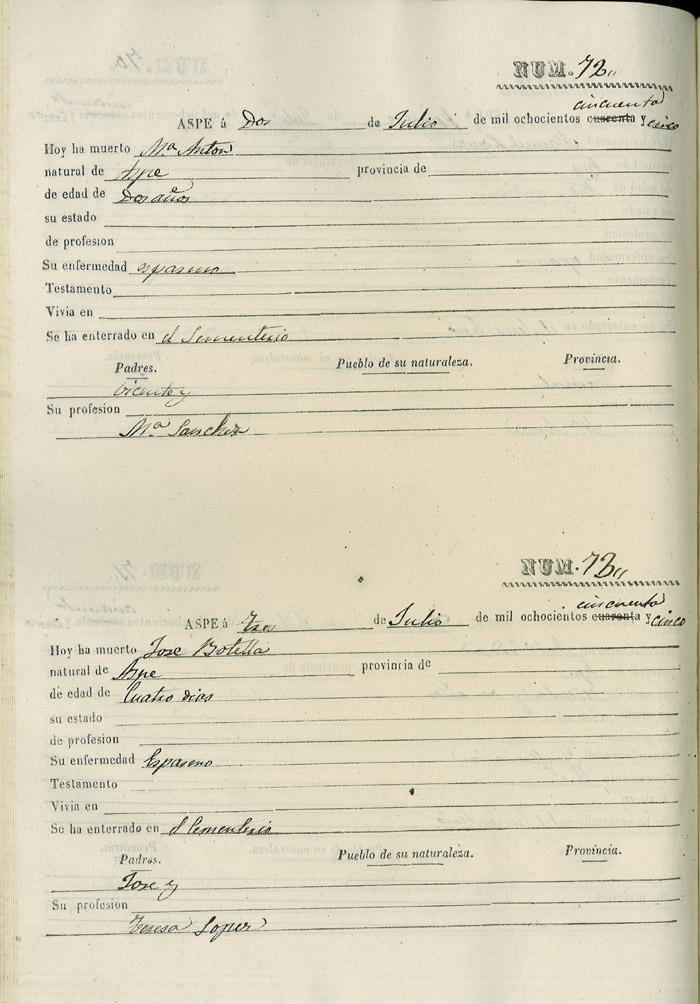 NUM. 72,,
cincuenta
ASPE á Dos de Julio de mil ochocientos cuarenta y cinco
Hoy ha muerto Mª Anton
natural de Aspe provincia de
de edad de Dos años
su estado
de profesion
Su enfermedad espasmo
Testamento
Vivia en
Se ha enterrado en el Sementerio
Padres. Pueblo de su naturaleza. Provincia.
Vicente y
Su profesion
Mª Sanchez
NUM. 73,,
cincuenta
ASPE á Tres de Julio de mil ochocientos cuarenta y cinco
Hoy ha muerto Jose Botella
natural de Aspe provincia de
de edad de Cuatro dias
su estado
de profesion
Su enfermedad Espasmo
Testamento
Vivia en
Se ha enterrado en el Cementerio
Padres. Pueblo de su naturaleza. Provincia.
Jose y
Su profesion
Teresa Lopez